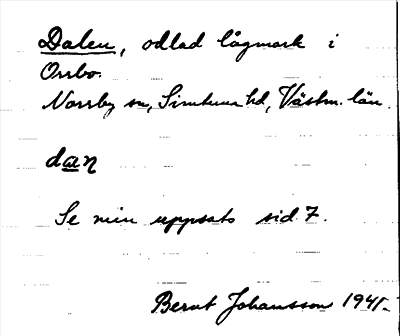 Dalen, odlad lågmark i
Orrbo.
Norrby sn, Simtuna hd, Västm. län.
dan
Se min uppsats sid 7.
Bernt Johansson 1941.